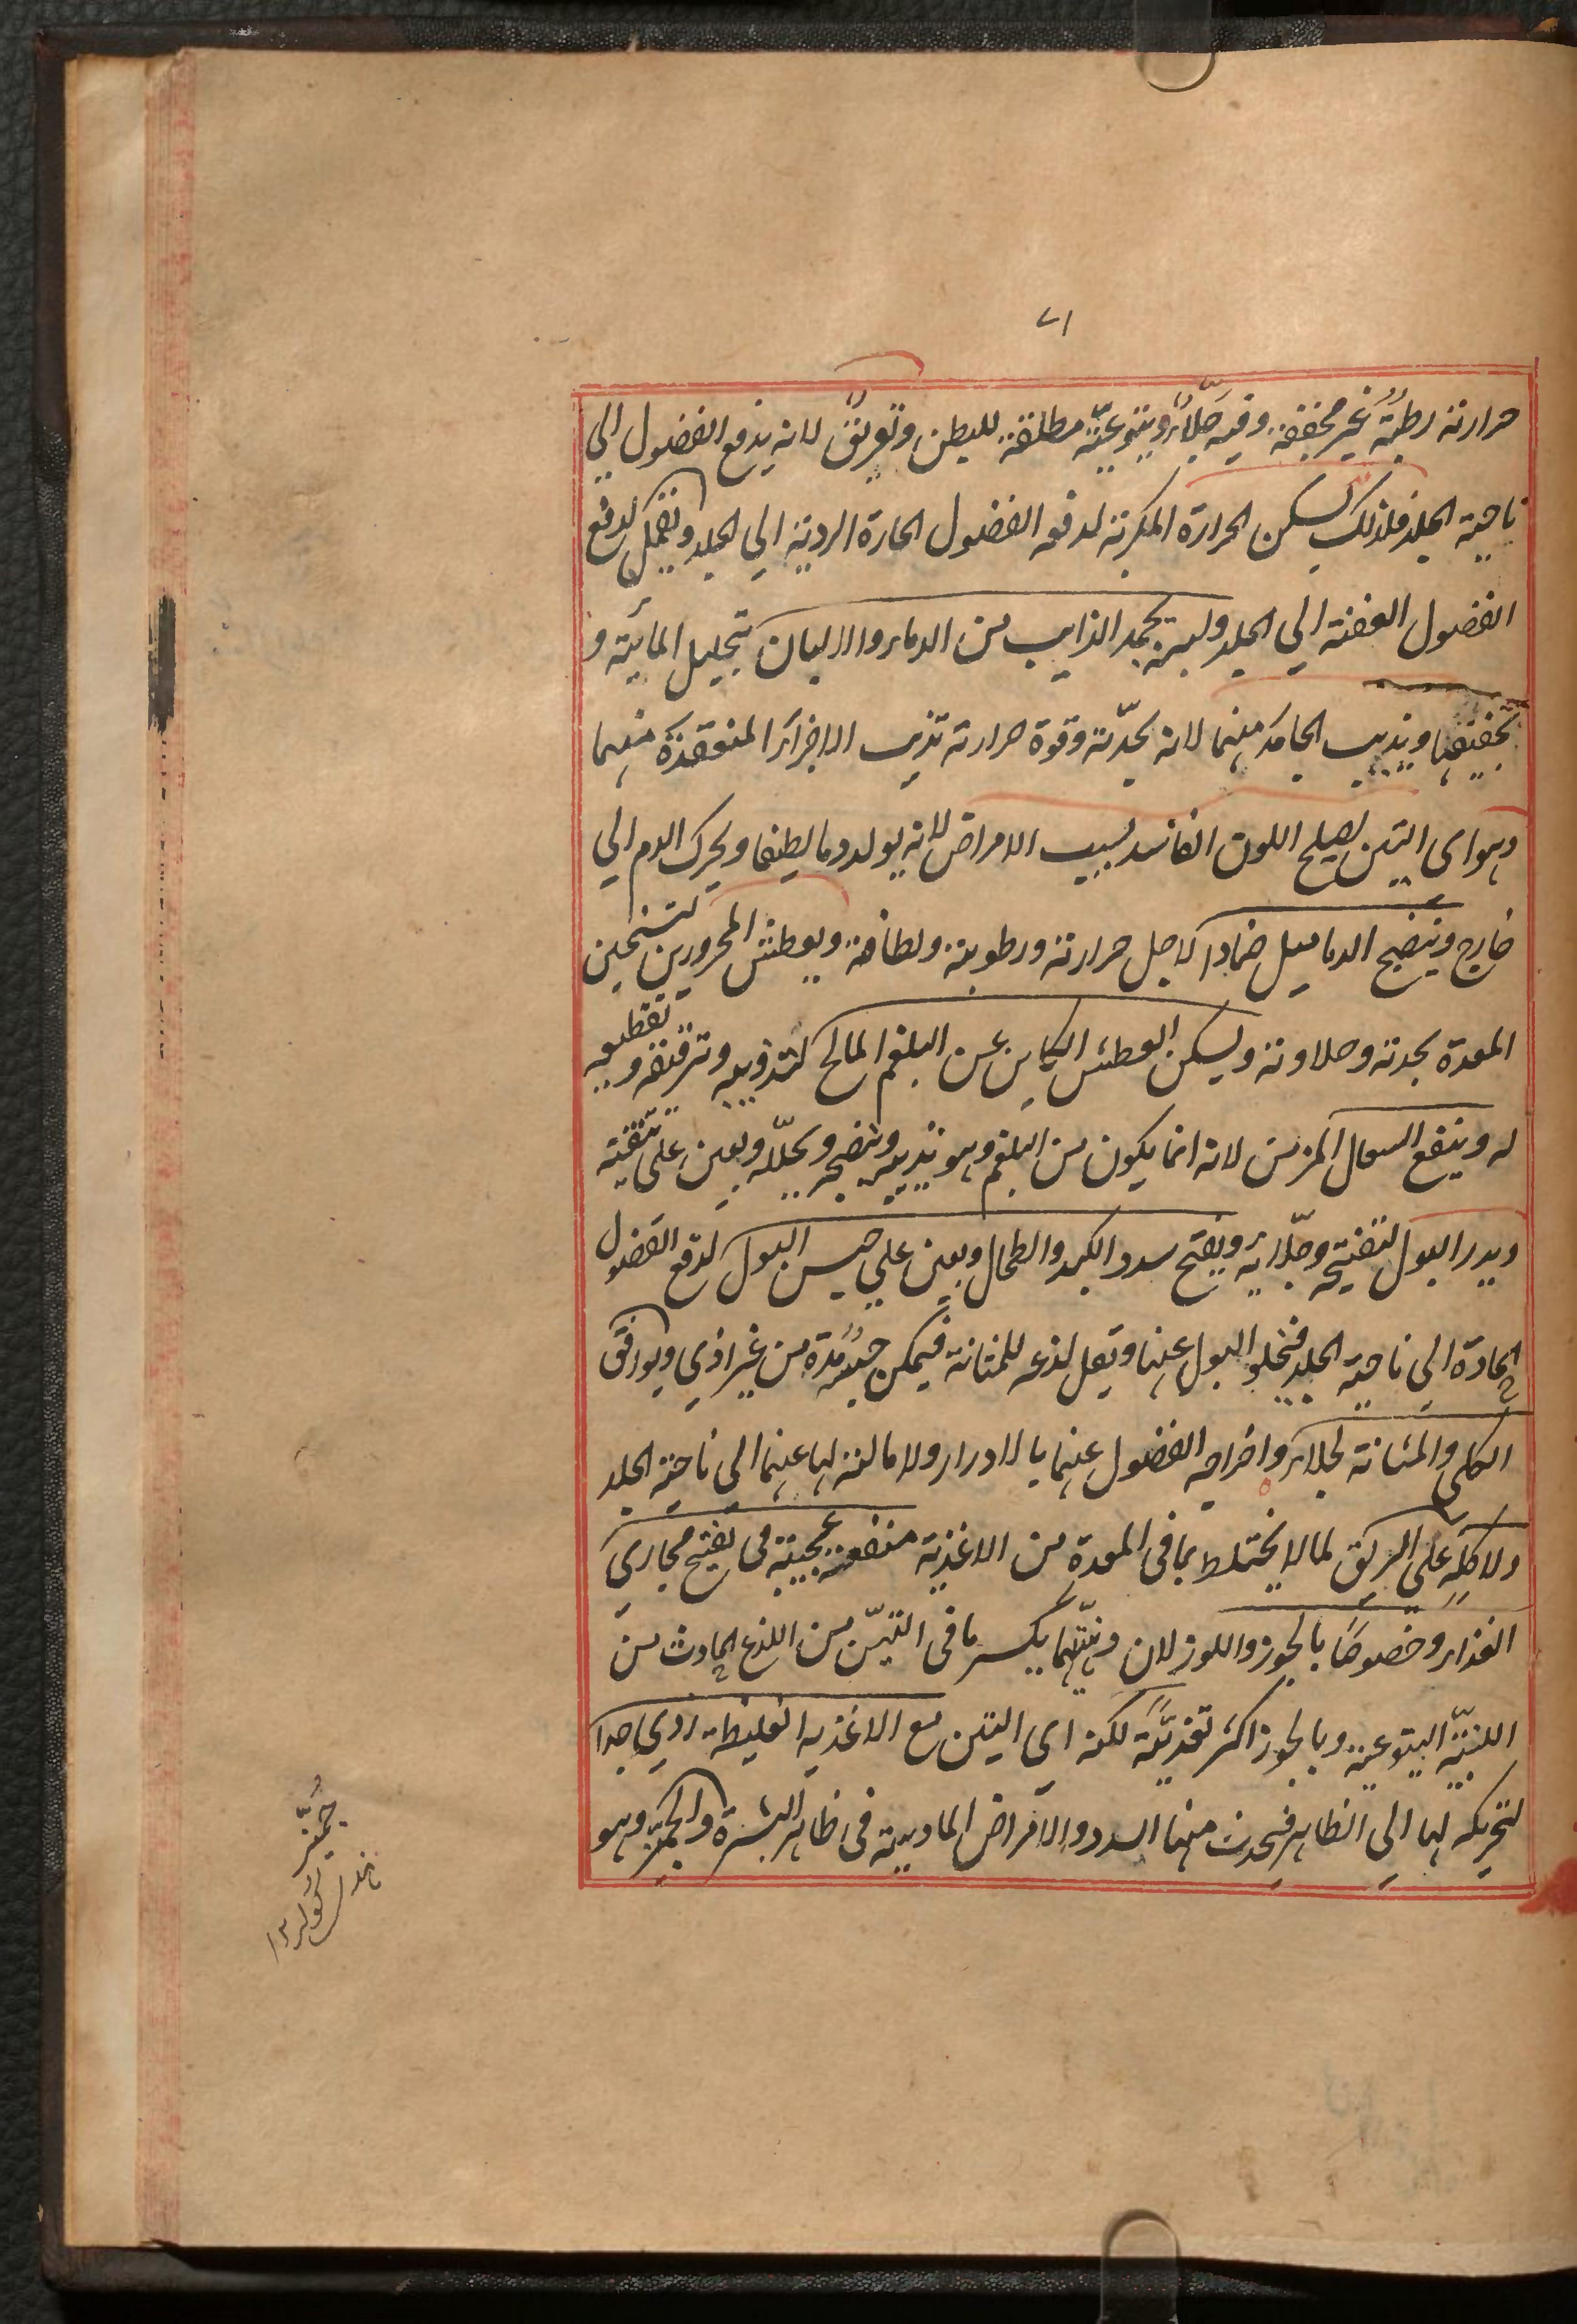 ٧١
حرارته رطبة غير مخففة وفيه جلاء ويتوعية مطلقة للبطن وتعريق لانه يدفع الفضول الي
ناحية الجلد فلذلك يسكن الحرارة المكربة لدفعه الفضول الحارة الردية الي الجلد ويقمل لدفع
الفضول العفنة الي الجلد ولبنه يجمد الذايب من الدماء والالبان بتحليل المائية و
تجفيفها ويذيب الجامد منهما لانه بحدّته وقوة حرارته تذيب الاجزاء المنعقدة منهما
وهو اى التين يصلح اللون الفاسد بسبب الامراض لانه يولد دما لطيفا ويحرك الدم الي
خارج وينضج الدماميل ضمادا لاجل حرارته ورطوبته ولطافته ويعطش المحرورين لتسخين
المعدة بحدته وحلاوته ويسكن العطش الكاين عن البلغم المالح لتذويبه وترقيقه وتقطيعه
له وينفع السعال المزمن لانه انما يكون من البلغم وهو يذيبه وينضجه ويحلله ويعين على تنقيته
ويدر البول لتفتيحه وجلائه ويفتح سدد الكبد والطحال ويعين علي حبس البول لدفع الفضول
الحادة الي ناحية الجلد فيخلو البول عنها ويقل لذعه للمثانة فيمكن حبسه مدة من غير اذي ويوافق
الكلى والمثانة لجلائه واخراجه الفضول عنهما بالادرار ولامالته لها عنهما الى ناحية الجلد
ولاكله على الريق لما لا يختلط بما فى المعدة من الاغذية منفعة عجيبة في تفتيح مجاري
الغذاء وخصوصًا بالجوز واللوز لان دهنيتهما يكسر ما فى التين من اللذع الحادث من
اللبنية اليتوعية وبالجوز اكثر تغذية لكنه اي التين مع الاغذيه الغليظة ردي جدا
لتحريكه لها الي الظاهر فيحدث منها السدد والامراض المادية فى ظاهر البشرة والجميز وهو
جُمَّيز
كولر ١٣